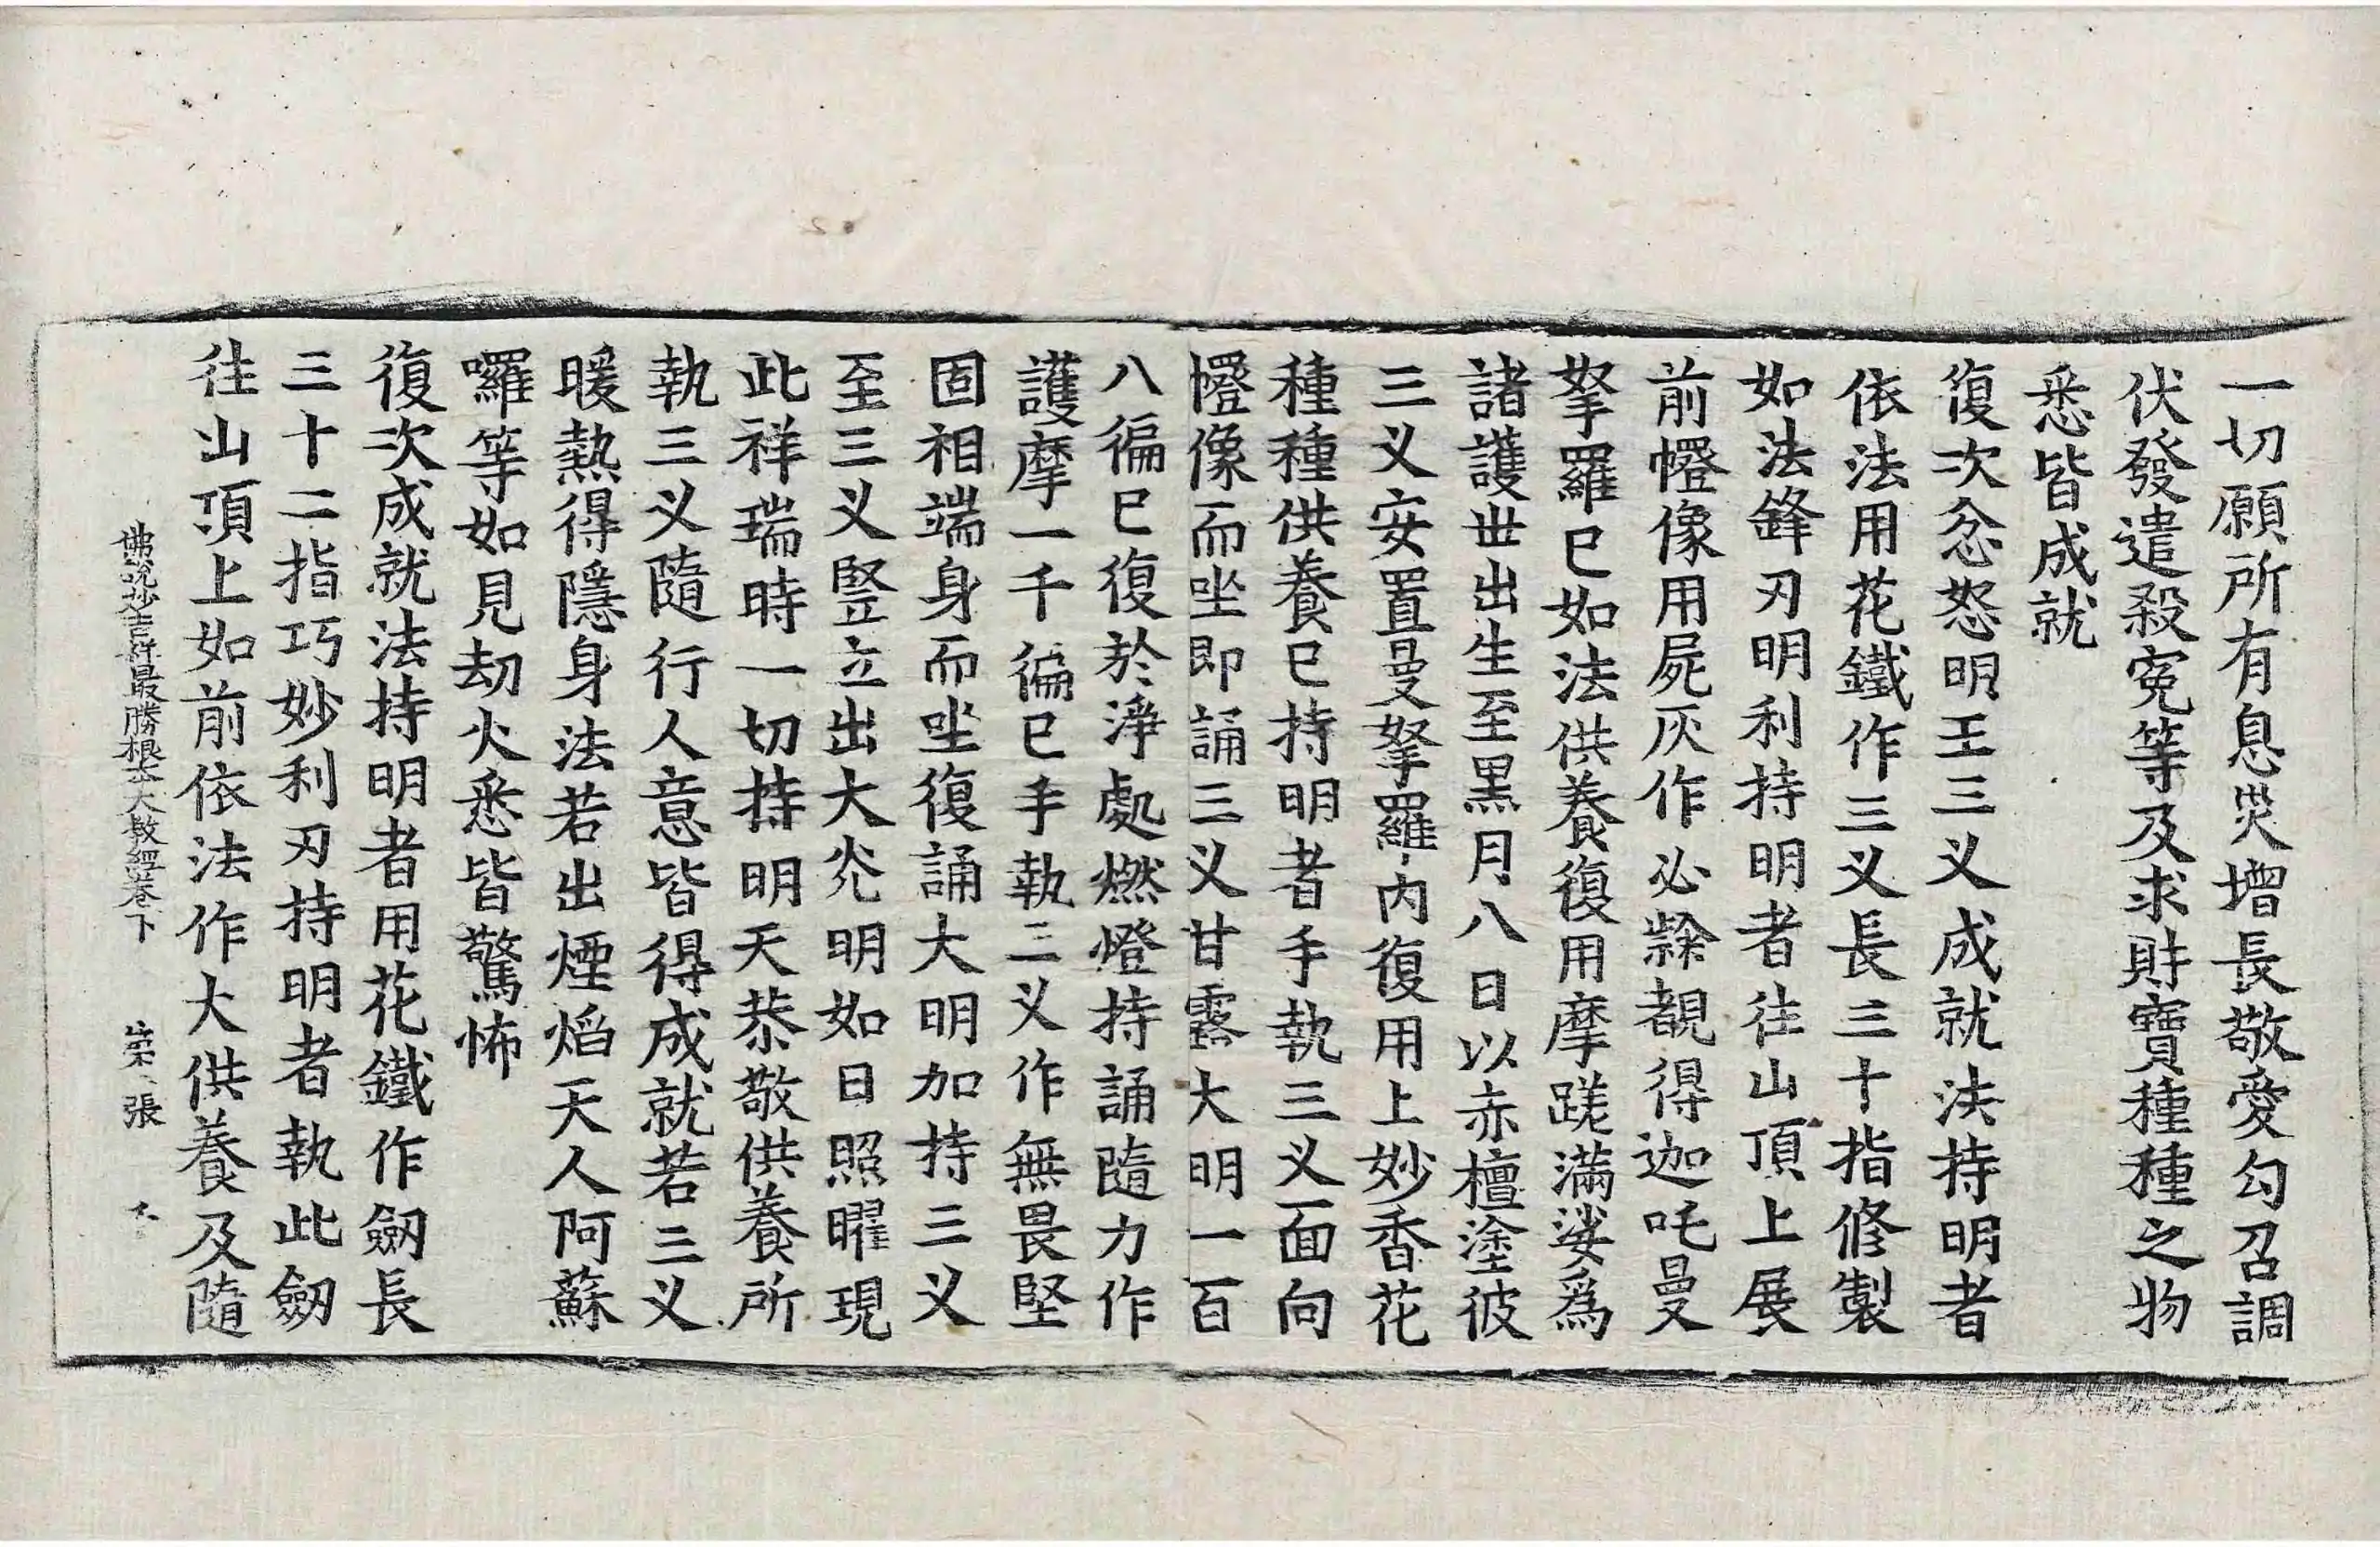 一切願所有息災增長敬愛勾召調
伏發遣殺寃等及求財寶種種之物
悉皆成就
復次忿怒明王三叉成就法持明者
依法用花鐵作三叉長三十指修製
如法鋒刃明利持明者往山頂上展
前㡧像用屍灰作必隸覩得迦吒曼
拏羅已如法供養復用摩蹉滿娑爲
諸護世出生至黑月八日以赤檀塗彼
三叉安置曼拏羅內復用上妙香花
種種供養已持明者手執三叉面向
㡧像而坐即誦三叉甘露大明一百
八徧已復於淨處燃燈持誦隨力作
護摩一千徧已手執三叉作無畏堅
固相端身而坐復誦大明加持三叉
至三叉豎立出大光明如日照曜現
此祥瑞時一切持明天恭敬供養所
執三叉隨行人意皆得成就若三叉
暖熱得隱身法若出煙焰天人阿蘇
囉等如見劫火悉皆驚怖
復次成就法持明者用花鐵作劒長
三十二指巧妙利刃持明者執此劒
往山頂上如前依法作大供養及隨
佛說妙吉祥最勝根本大教經卷下 張